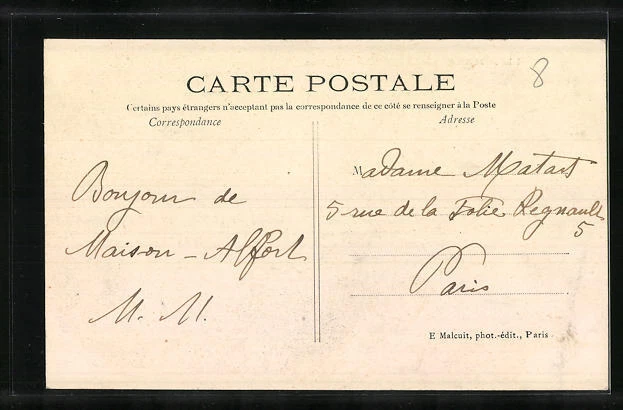 8
CARTE POSTALE
Certains pays étrangers n'acceptant pas la correspondance de ce côté se renseigner à la Poste
Correspondance
Adresse
Bonjour de
Maison-Alfort
M. M.
Madame Matart
5 rue de la Folie Regnault
5
Paris
E Malcuit, phot.-édit., Paris